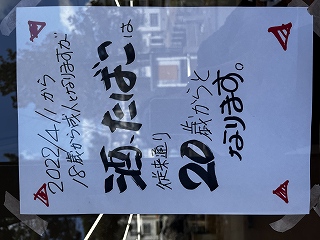 2022/4/1から
18歳から成人となりますが
酒、たばこは
従来通り
20歳からと
なります。